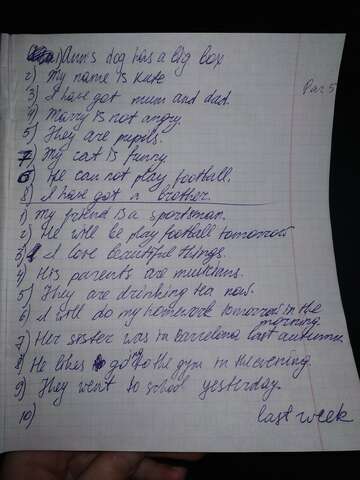 1) Ann's dog has a big box
2) My name is Kate
3) I have got mum and dad.
4) Marry is not angry.
5) They are pupils.
7) My cat is funny.
6) He can not play football.
8) I have got a brother.
1) My friend is a sportsman.
2) He will be play football tomorrow
3) I love beautiful things.
4) His parents are musicians.
5) They are drinking tea now.
6) I will do my homework tomorrow in the
morning.
7) Her sister was in Barcelona last autumn.
8) He likes going to the gym in the evening.
9) They went to school yesterday.
10) last week